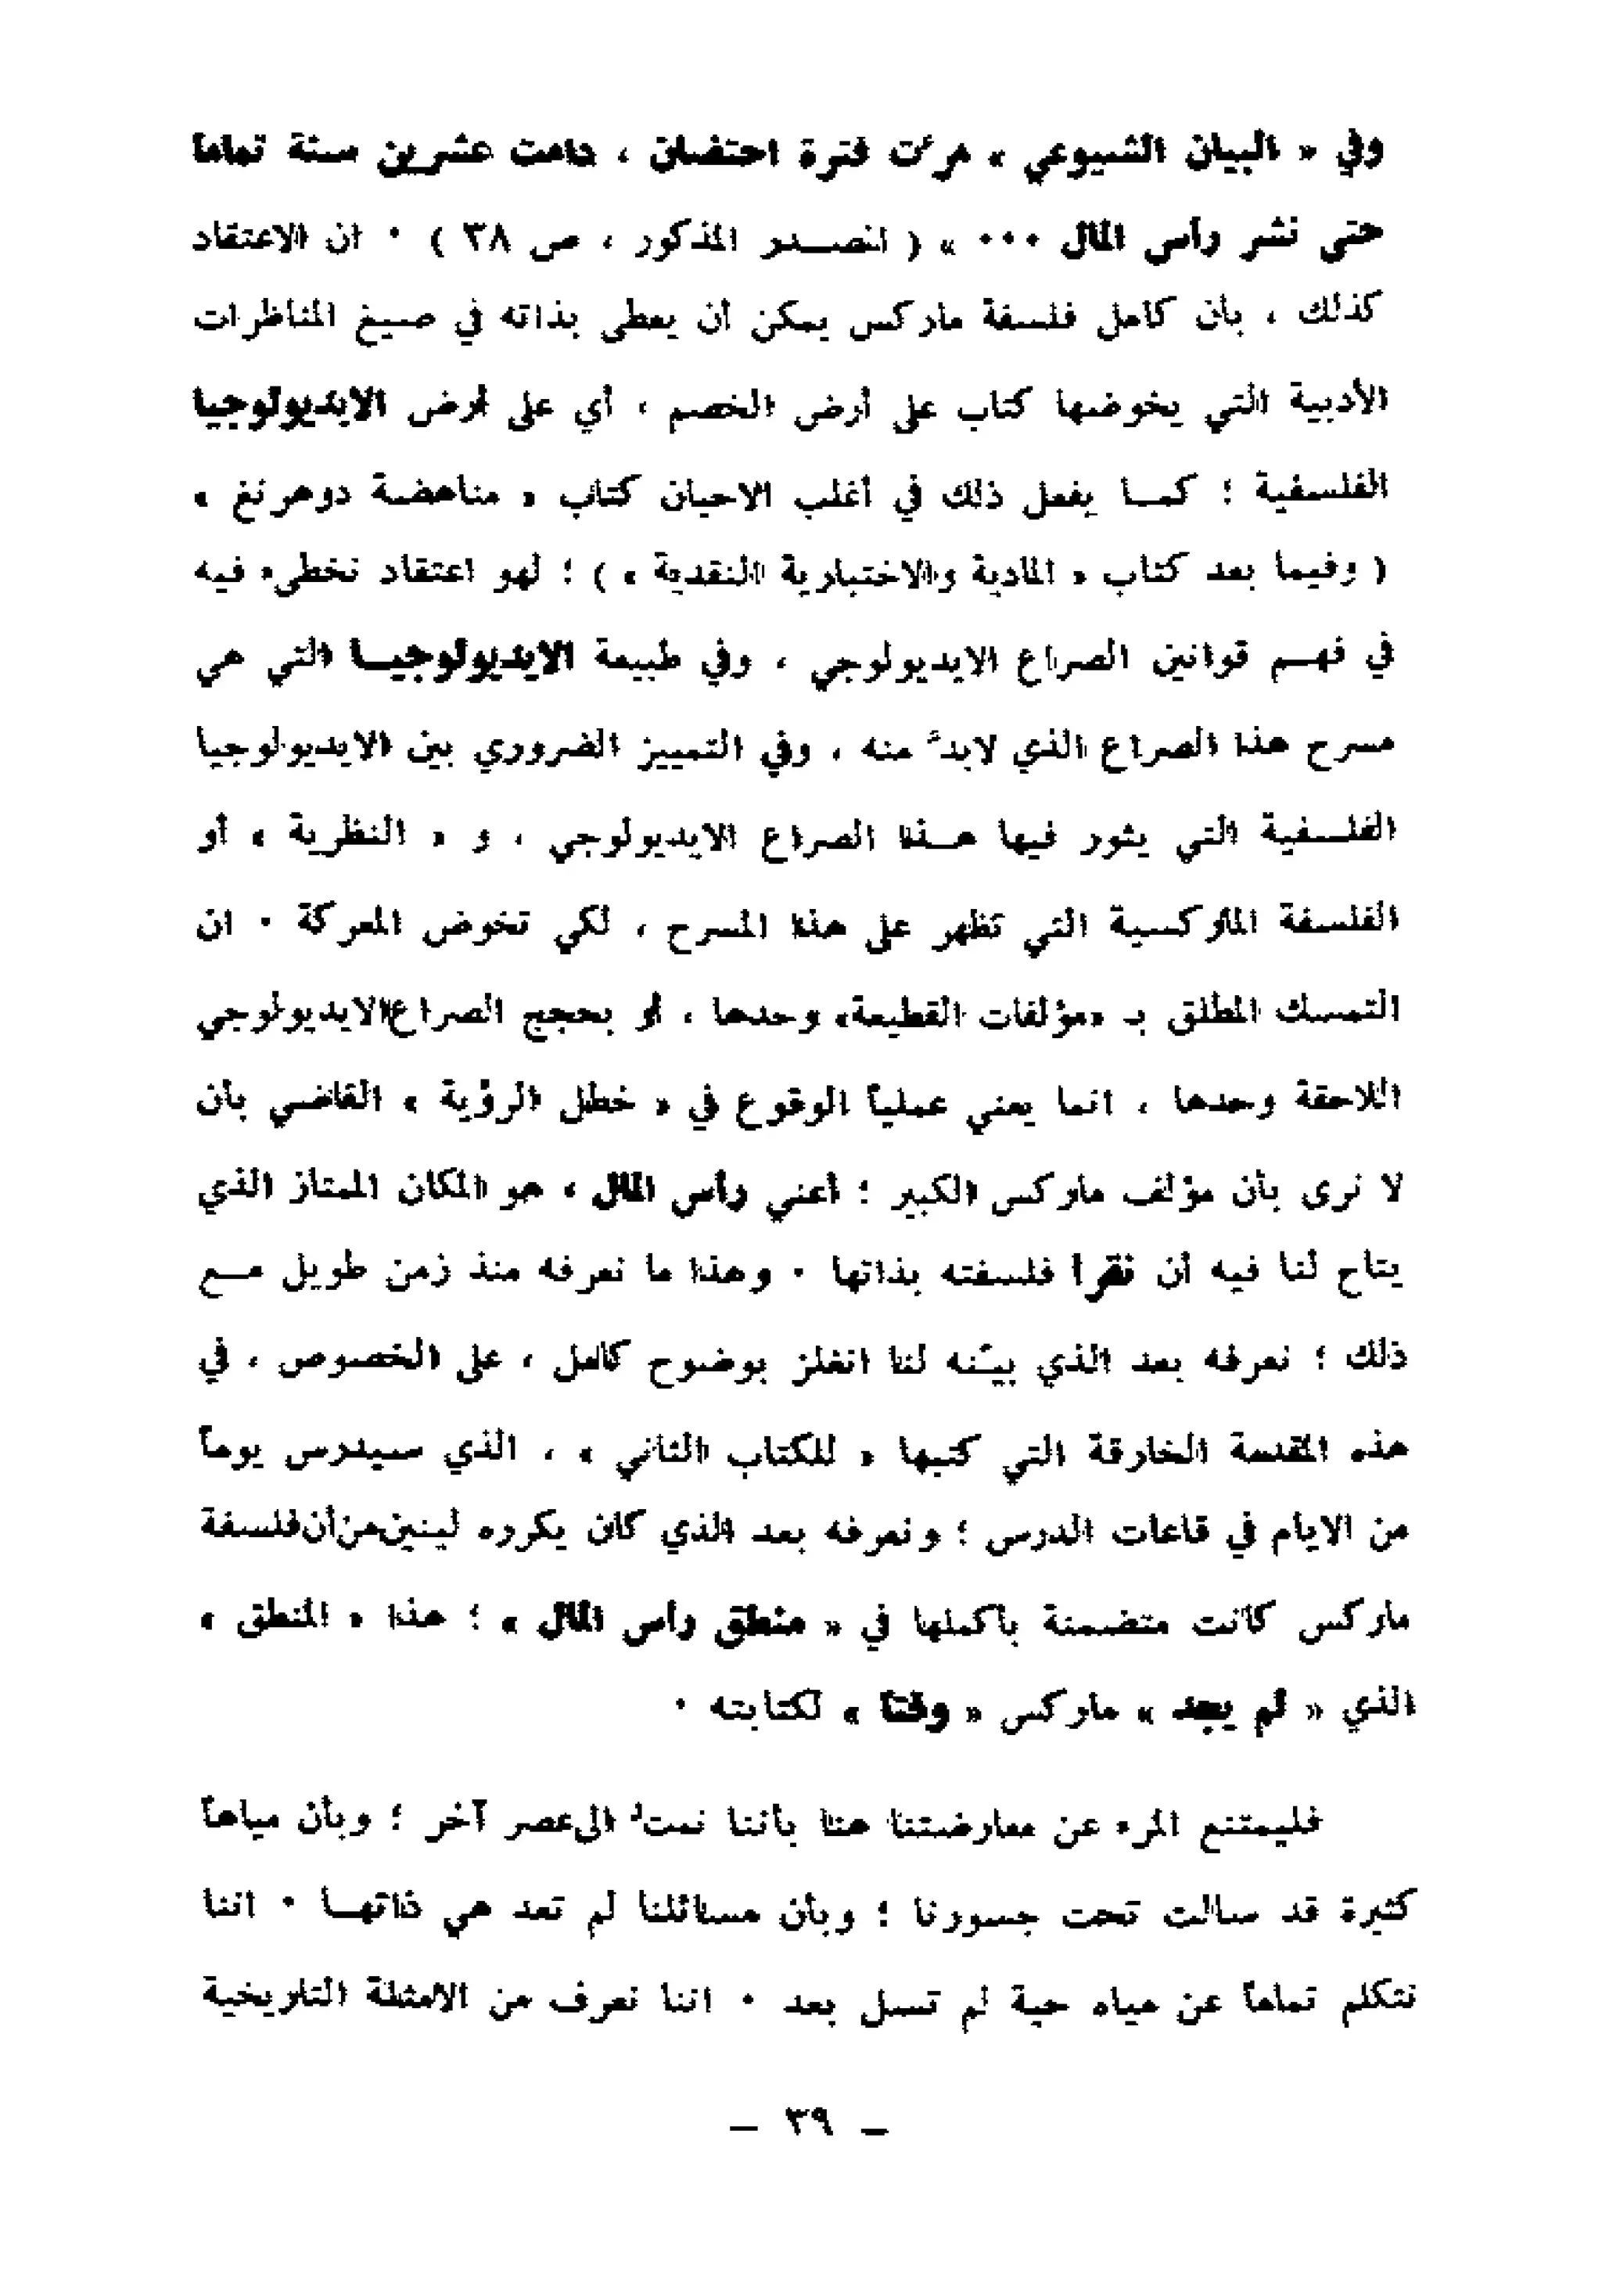 وفي « البيان الشيوعي » مرّت فترة احتضان ، دامت عشرين سنة تماماً
حتى نشر رأس المال ٠٠٠ » ( المصدر المذكور ، ص ٣٨ ) ٠ ان الاعتقاد
كذلك ، بأن كامل فلسفة ماركس يمكن أن يعطى بذاته في صيغ المناظرات
الأدبية التي يخوضها كتاب على أرض الخصم ، أي على أرض الايديولوجيا
الفلسفية ؛ كما يفعل ذلك في أغلب الاحيان كتاب « مناهضة دوهرنغ »
( وفيما بعد كتاب « المادية والاختبارية النقدية » ) ؛ لهو اعتقاد نخطىء فيه
في فهم قوانين الصراع الايديولوجي ، وفي طبيعة الايديولوجيا التي هي
مسرح هذا الصراع الذي لابدّ منه ، وفي التمييز الضروري بين الايديولوجيا
الفلسفية التي يثور فيها هذا الصراع الايديولوجي ، و « النظرية » أو
الفلسفة الماركسية التي تظهر على هذا المسرح ، لكي تخوض المعركة ٠ ان
التمسك المطلق بـ «مؤلفات القطيعة» وحدها ، أو بحجج الصراع الايديولوجي
اللاحقة وحدها ، انما يعني عملياً الوقوع في « خطل الرؤية » القاضي بأن
لا نرى بأن مؤلف ماركس الكبير ؛ أعني رأس المال ، هو المكان الممتاز الذي
يتاح لنا فيه أن نقرأ فلسفته بذاتها ٠ وهذا ما نعرفه منذ زمن طويل مع
ذلك ؛ نعرفه بعد الذي بيّنه لنا انغلز بوضوح كامل ، على الخصوص ، في
هذه المقدمة الخارقة التي كتبها « للكتاب الثاني » ، الذي سيدرس يوماً
من الايام في قاعات الدرس ؛ ونعرفه بعد الذي كان يكرره لينين من أن فلسفة
ماركس كانت متضمنة بأكملها في « منطق رأس المال » ؛ هذا « المنطق »
الذي « لم يجد » ماركس « وقتاً » لكتابته ٠
فليمتنع المرء عن معارضتنا هنا بأننا نمتّ الى عصر آخر ؛ وبأن مياهاً
كثيرة قد سالت تحت جسورنا ؛ وبأن مسائلنا لم تعد هي ذاتها ٠ اننا
نتكلم تماماً عن مياه حية لم تسل بعد ٠ اننا نعرف من الامثلة التاريخية
– ٣٩ –